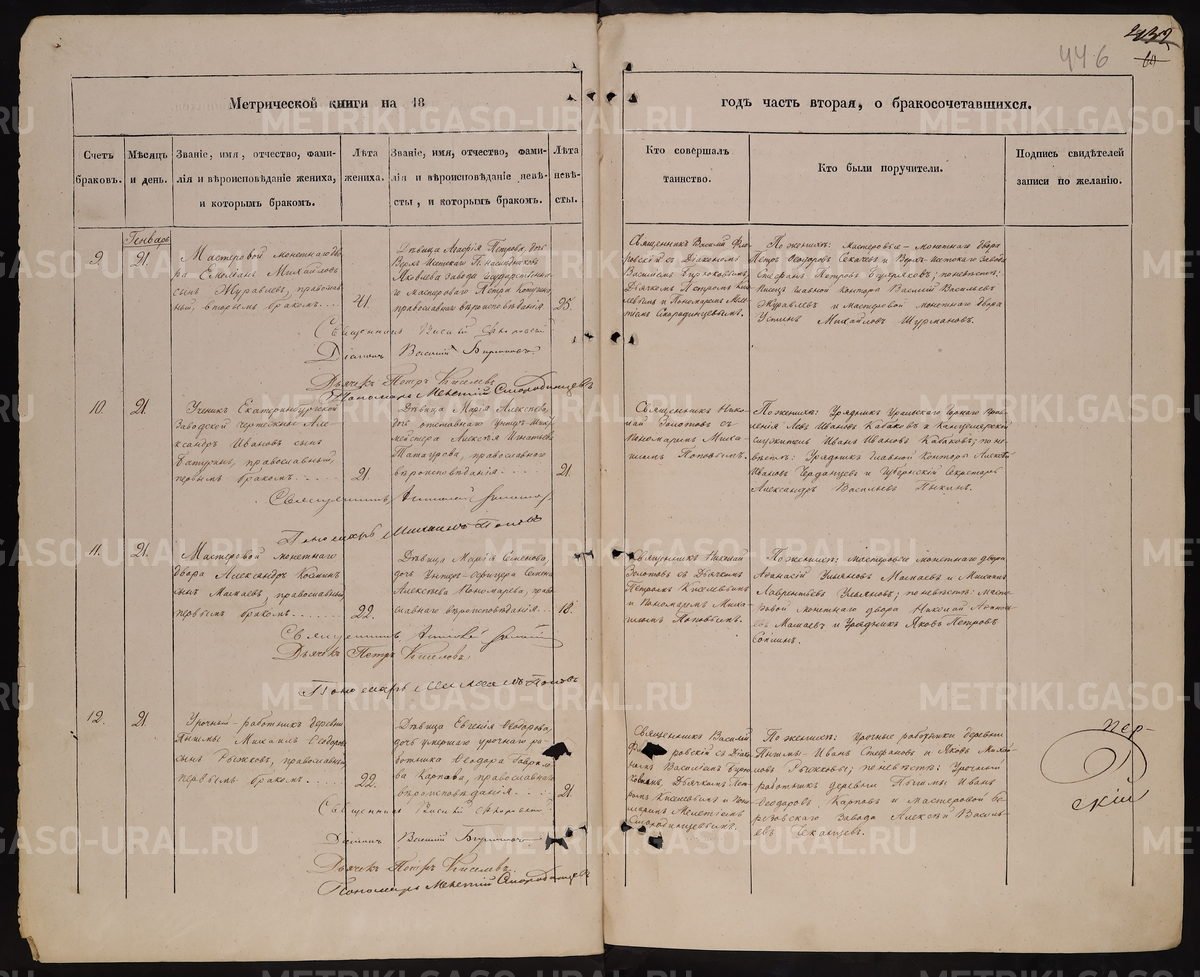 446
Метрической книги на 18
годъ часть вторая, о бракосочетавшихся.
Счетъ браковъ.
Мѣсяцъ и день.
Званіе, имя, отчество, фами-
лія и вѣроисповѣданіе жениха,
и которымъ бракомъ.
Лѣта
жениха.
Званіе, имя, отчество, фами-
лія и вѣроисповѣданіе невѣ-
сты, и которымъ бракомъ.
Лѣта
невѣ-
сты.
Кто совершалъ
таинство.
Кто были поручители.
Подпись свидѣтелей
записи по желанію.
Генварь
9.
21.
Мастеровой монетнаго дво-
ра Емельянъ Михайловъ
сынъ Журавлевъ, православ-
ный, вторымъ бракомъ
41.
Дѣвица Агафія Петрова, дочь
Яковлева завода
и мастероваго Петра
православнаго вѣроисповѣданія
25.
Священникъ Василій Фло-
ровскій съ Діакономъ
Василіемъ Бирюковымъ,
Дьячкомъ Петромъ Кис-
елевымъ и Пономаремъ Меле-
тіемъ Смородинцевымъ.
По женихѣ: мастеровые монетнаго двора
Петръ Ѳеодоровъ Секачевъ и Верхъ-истскаго завода
Стефанъ Петровъ; по невѣстѣ:
Писецъ главной конторы Василій Васильевъ
Журавлевъ и мастеровой монетнаго двора
Устинъ Михайловъ Шурмановъ.
Священникъ Василій Флоровскій
Діаконъ Василій Бирюковъ
Дьячекъ Петръ Киселевъ
Пономарь Мелетій Смородинцевъ
10.
21.
Ученикъ Екатеринбургской
Заводской чертежны Але-
ксандръ Ивановъ сынъ
Батуринъ, православный,
первымъ бракомъ
21.
Дѣвица Марія Алексѣева,
дочь отставнаго унтеръ-шихт-
мейстера Алексѣя Игнатьева
Татаурова, православнаго
вѣроисповѣданія
21.
Священникъ Нико-
лай Золотовъ съ
Пономаремъ Миха-
иломъ Поповымъ.
По женихѣ: Урядникъ Уральскаго Горнаго Прав-
ленія Левъ Ивановъ Кабаковъ и Канцелярскій
служитель Иванъ Ивановъ Кабаковъ; по не-
вѣстѣ: Урядникъ Главной Конторы Алексѣй
Ивановъ Черданцевъ и Губернскій Секретарь
Александръ Васильевъ Пыкинъ.
Священникъ Николай Золотовъ
Пономарь Михаилъ Поповъ
11.
21.
Мастеровой монетнаго
двора Александръ Козминъ
сынъ Мамаевъ, православный,
первымъ бракомъ
22.
Дѣвица Марія Семенова,
дочь Унтеръ-берггауера Семена
Алексѣева Пономарева, право-
славнаго вѣроисповѣданія
18.
Священникъ Николай
Золотовъ съ Дьячкомъ
Петромъ Киселевымъ
и Пономаремъ Миха-
иломъ Поповымъ.
По женихѣ: мастеровые монетнаго двора
Аѳанасій Ульяновъ Мамаевъ и Михаилъ
Лаврентьевъ Ульяновъ; по невѣстѣ: масте-
ровой монетнаго двора Николай
Мамаевъ и Урядникъ Яковъ Петровъ
Сапкинъ.
Священникъ Николай Золотовъ
Дьячекъ Петръ Киселевъ
Пономарь Михаилъ Поповъ
12.
21
Урочный работникъ деревни
Пышмы Михаилъ Ѳеодоровъ
сынъ Рыжковъ, православный,
первымъ бракомъ
22.
Дѣвица Евгенія Ѳеодорова,
дочь умершаго урочнаго ра-
ботника Ѳеодора Гаврило-
ва Карпова, православнаго
вѣроисповѣданія
21
Священникъ Василій
Флоровскій съ Діако-
номъ Василіемъ Бирю-
ковымъ, Дьячкомъ Пет-
ромъ Киселевымъ и Поно-
маремъ Мелетіемъ
Смородинцевымъ.
По женихѣ: Урочные работники деревни
Пышмы Иванъ Стефановъ и Яковъ Михай-
ловъ Рыжковы; по невѣстѣ: Урочный
работникъ деревни Пышмы Иванъ
Ѳеодоровъ Карповъ и мастеровой Бе-
резовскаго завода Алексѣй Василь-
евъ Искалцевъ.
Священникъ Василій Флоровскій
Діаконъ Василій Бирюковъ
Дьячекъ Петръ Киселевъ
Пономарь Мелетій Смородинцевъ
METRIKI.GASO-URAL.RU